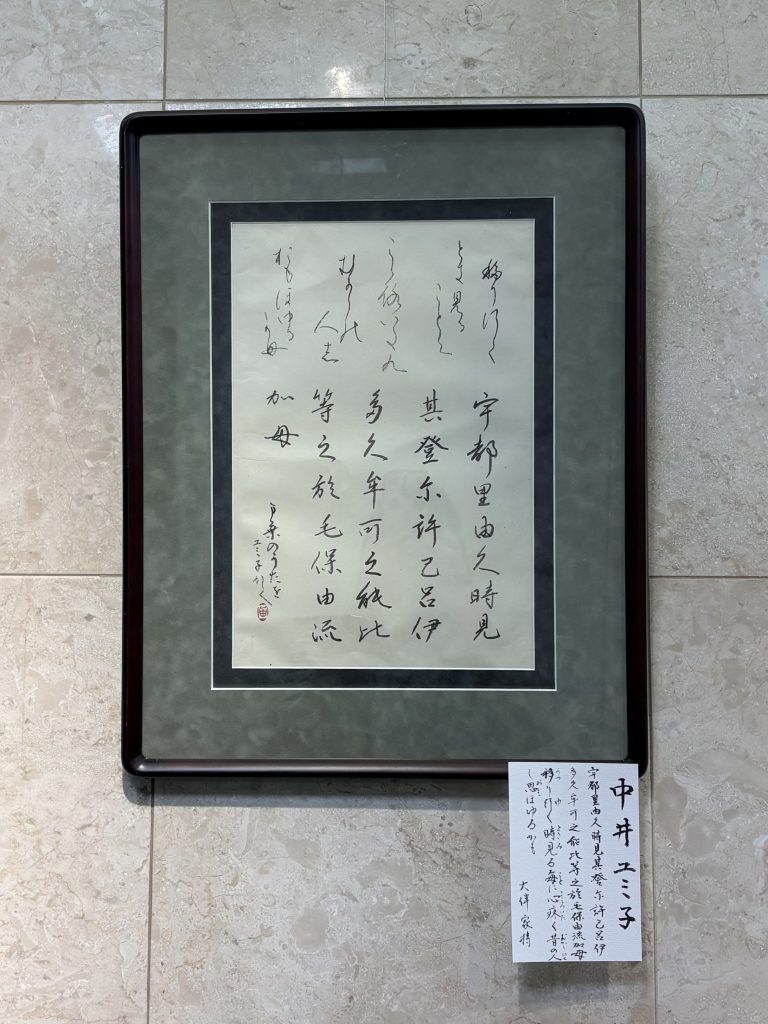 移り行く
とき見る
ことに
むかしの
人志
おもほゆる
か母
宇都里由久時見
其登尓許己呂伊
多久牟可之能比
等之於毛保由流
加母
万葉のうたを
ユミ子かく
中井ユミ子
宇都里由久時見其登尓許己呂伊
多久牟可之能比等之於毛保由流加母
移り行く時見る毎に心疼く昔の人
し思ほゆるかも
大伴家持